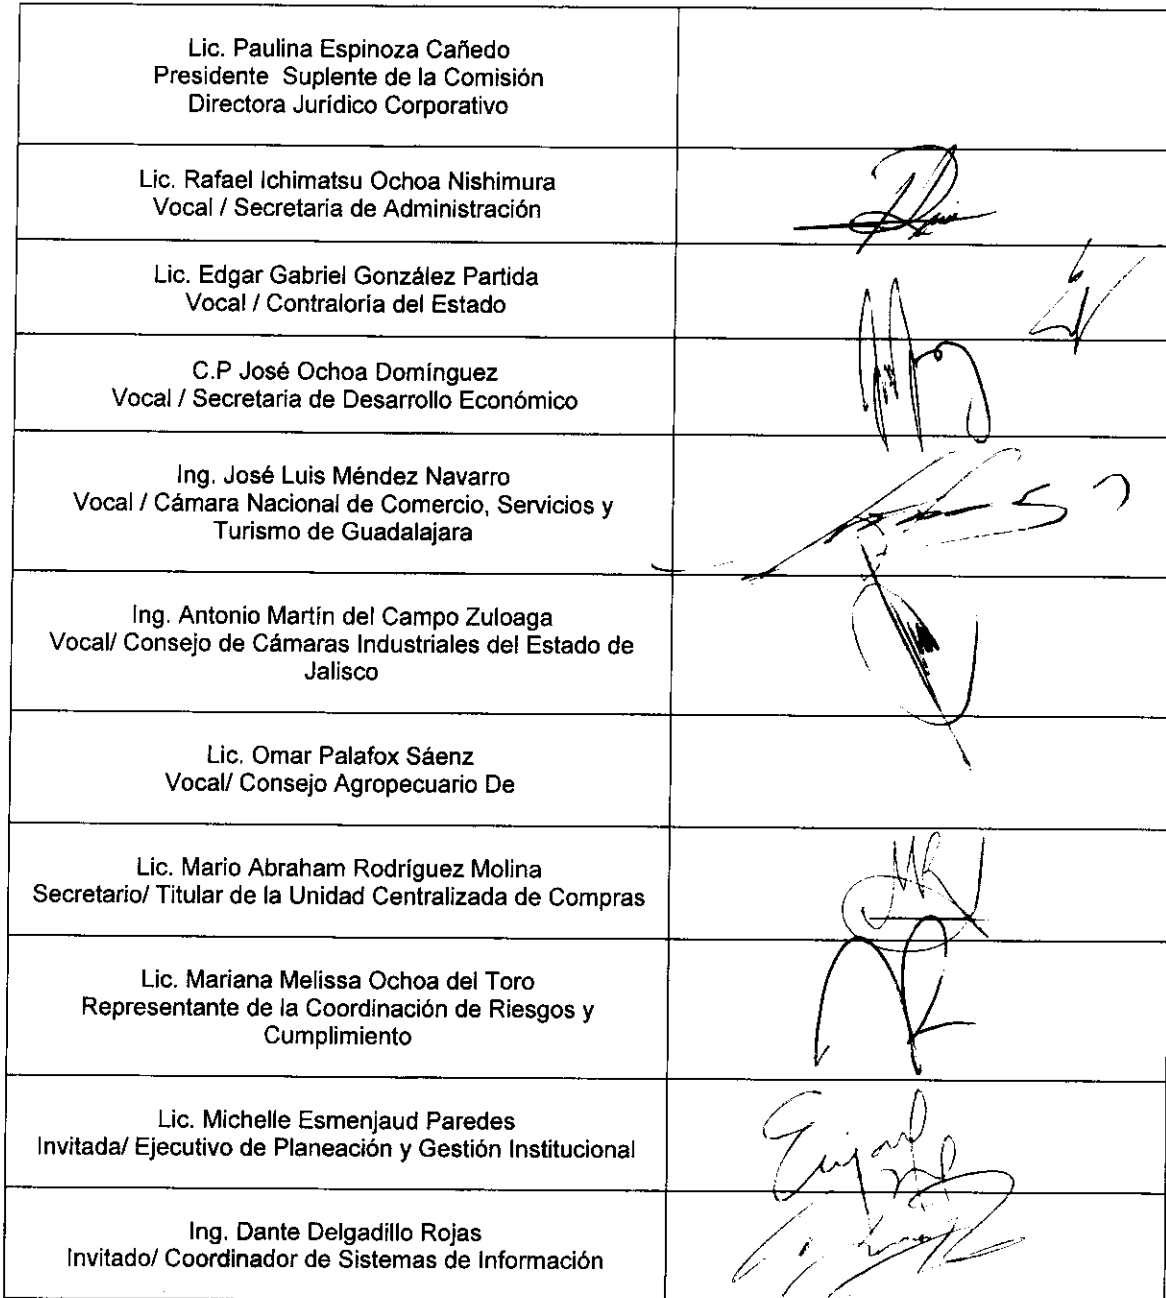 Lic. Paulina Espinoza Cañedo
Presidente Suplente de la Comisión
Directora Jurídico Corporativo
Lic. Rafael Ichimatsu Ochoa Nishimura
Vocal / Secretaria de Administración
Lic. Edgar Gabriel González Partida
Vocal / Contraloría del Estado
C.P José Ochoa Domínguez
Vocal / Secretaria de Desarrollo Económico
Ing. José Luis Méndez Navarro
Vocal / Cámara Nacional de Comercio, Servicios y
Turismo de Guadalajara
Ing. Antonio Martín del Campo Zuloaga
Vocal/ Consejo de Cámaras Industriales del Estado de
Jalisco
Lic. Omar Palafox Sáenz
Vocal/ Consejo Agropecuario De
Lic. Mario Abraham Rodríguez Molina
Secretario/ Titular de la Unidad Centralizada de Compras
Lic. Mariana Melissa Ochoa del Toro
Representante de la Coordinación de Riesgos y
Cumplimiento
Lic. Michelle Esmenjaud Paredes
Invitada/ Ejecutivo de Planeación y Gestión Institucional
Ing. Dante Delgadillo Rojas
Invitado/ Coordinador de Sistemas de Información